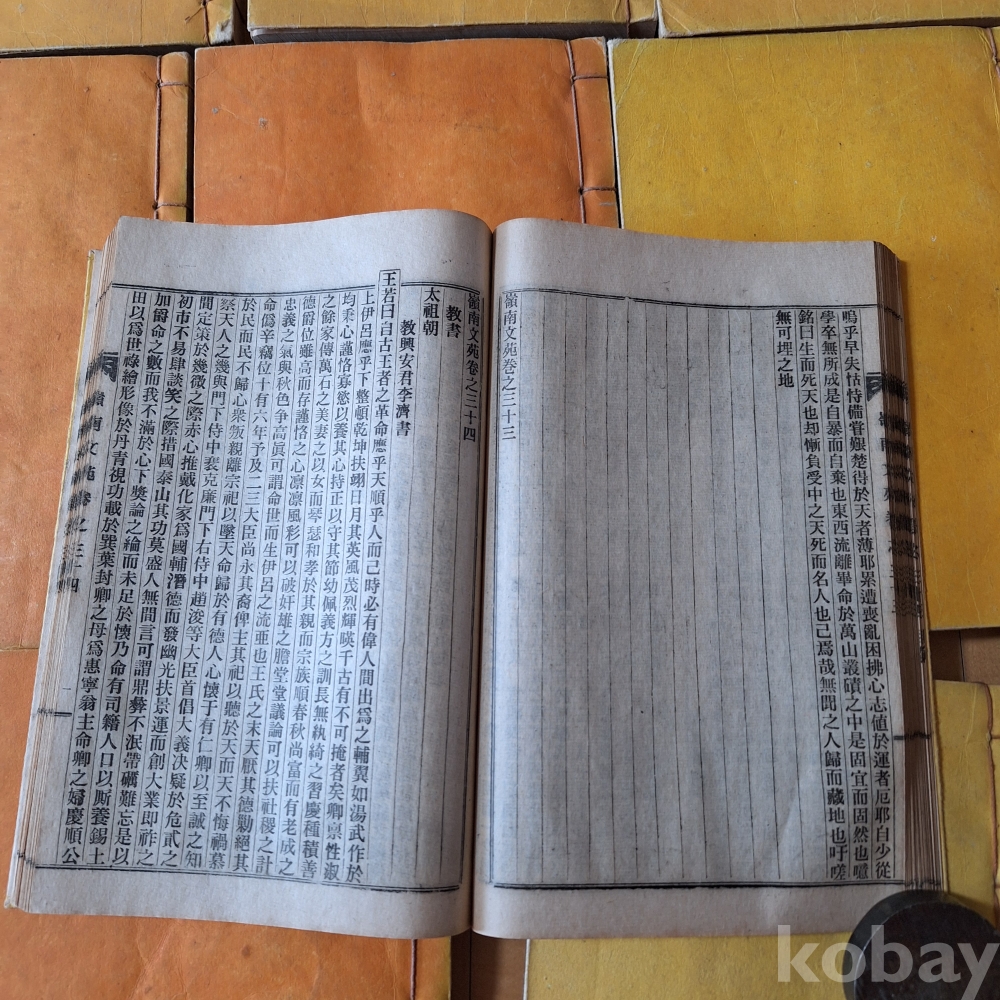 嗚乎早失怙恃備嘗艱楚得於天者薄耶累遭喪亂困拂心志値於運者厄耶自少從
學卒無所成是自暴而自棄也東西流離畢命於萬山叢磧之中是固宜而固然也噫
銘曰生而死天也却慚負受中之天死而名人也己爲哉無聞之人歸而藏地也吁嗟
無可埋之地
嶺南文苑卷之三十三
嶺南文苑卷之三十四
教書
太祖朝
教興安君李濟書
王若曰自古王者之革命應乎天順乎人而己時必有偉人間出爲之輔翼如湯武作於
上伊呂應乎下整頓乾坤扶翊日月其英風茂烈輝暎千古有不可掩者矣卿禀性淑
均秉心謹恪寡慾以養其心持正以守其節幼佩義方之訓長無紈綺之習慶種積善
之餘家傳萬石之美妻之以女而琴瑟和孝於其親而宗族順春秋尚富而有老成之
德爵位雖高而存謹恪之心凛凛風彩可以破奸雄之膽堂堂議論可以扶社稷之計
忠義之氣與秋色争高眞可謂命世而生伊呂之流亜也王氏之末天厭其德勦絕其
命僞辛竊位十有六年予及二三大臣尚永其裔俾主其祀以聽於天而天不悔禍慕
於民而民不歸心衆叛親離宗祀以墜天命歸於有德人心懷于有仁卿以至誠之知
祭天人之幾與門下侍中裵克廉門下右侍中趙浚等大臣首倡大義決疑於危貳之
間定策於幾微之際赤心推戴化家爲國輔潛德而發幽光扶景運而創大業即祚之
初市不易肆談笑之際措國泰山其功莫盛人無間言可謂鼎彜不泯帶礪難忘是以
加爵命之數而我不滿於心下獎論之綸而未足於懷乃命有司籍人口以厮養錫土
田以爲世祿繪形像於丹青視功載於巽葉封卿之母爲惠寧翁主命卿之婦慶順公
嶺南文苑卷之三十四
kobay